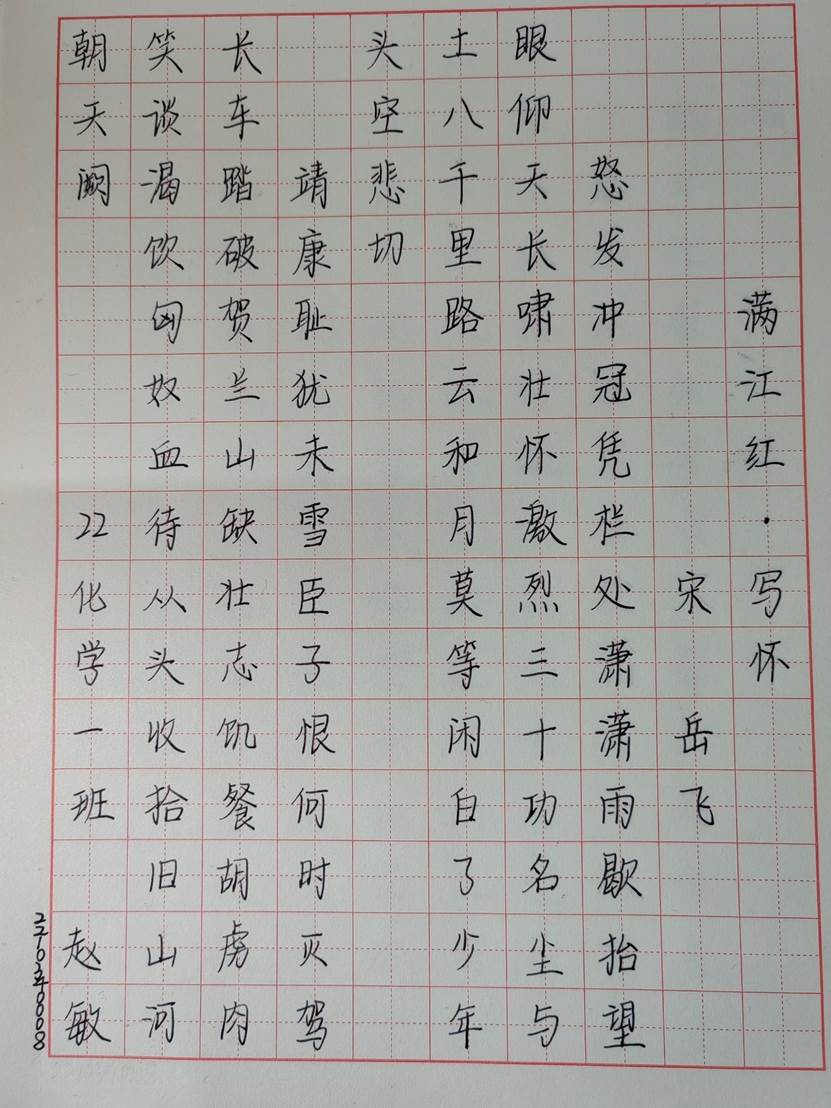 满江红·写怀
宋 岳飞
怒发冲冠凭栏处潇潇雨歇抬望
眼仰天长啸壮怀激烈三十功名尘与
土八千里路云和月莫等闲白了少年
头空悲切
靖康耻犹未雪臣子恨何时灭驾
长车踏破贺兰山缺壮志饥餐胡虏肉
笑谈渴饮匈奴血待从头收拾旧山河
朝天阙
22化学一班 赵敏